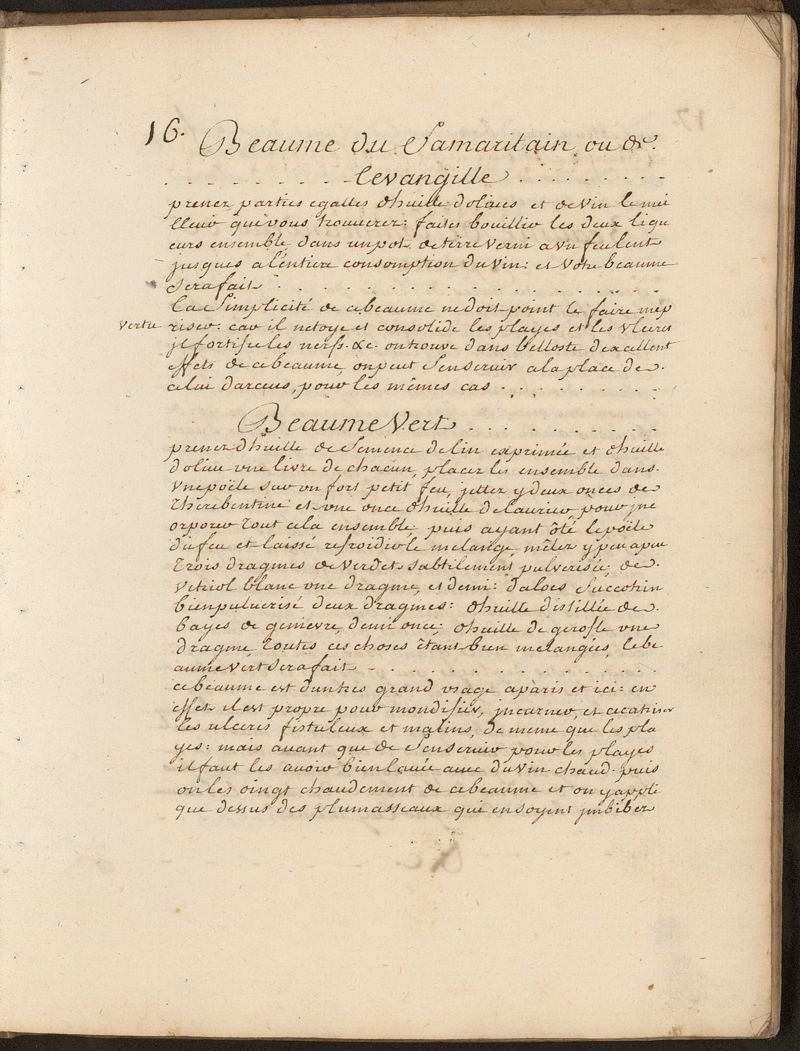 16. Beaume du Samaritain ou de
levangille
prenez parties egalles dhuille dolives et de vin le mei
lleur que vous trouverez: faites bouillir les deux liqu
eurs ensemble dans un pot de terre verni a un feu lent
jusques a lentiere consomption du vin: et votre beaume
sera fait
la simplicité de ce beaume ne doit point le faire mep
vertu riser: car il netoye et consolide les playes et les ulceres
il fortifie les nerfs &c. on trouve dans belloste dexcellent
effets de ce beaume, on peut s'en servir a la place de
celui darceus, pour les mêmes cas
Beaume Vert
prenez dhuille de semence de lin exprimée et dhuille
dolive une livre de chacun, placez les ensemble dans
une poële sur un fort petit feu, jettez y deux onces de
therebentine et une once dhuille de laurier pour jnc
orporer tout cela ensemble puis ayant ôté le poële
du feu et laissé refroidir le melange mêlez y peu a peu
trois dragmes de verdet subtilement pulverisée, de
vitriol blanc une dragme et demi: daloes succotrin
bien pulverisé deux dragmes: dhuille distillée de
bayes de genievre, demi once; dhuille de gerofle une
dragme toutes ces choses êtant bien melangées, le be
aume vert sera fait
ce beaume est d'un tres grand usage a paris et ici: en
effet il est propre pour mondifier, jncarner, et cicatriser
les ulceres fistuleux et malins, de meme que les pla
yes: mais avant que de s'en servir pour les playes
il faut les avoir bien lavée avec du vin chaud puis
on les oingt chaudement de ce beaume et on y appli
que dessus des plumasseaux qui en soyent jmbibez